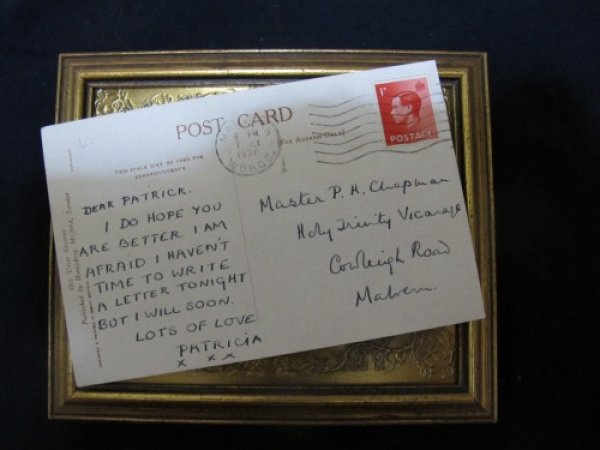 POST CARD
THIS SPACE MAY BE USED FOR
CORRESPONDENCE
(FOR ADDRESS ONLY)
8 PM
1937
1D
POSTAGE
DEAR PATRICK.
I DO HOPE YOU
ARE BETTER. I AM
AFRAID I HAVEN'T
TIME TO WRITE
A LETTER TONIGHT
BUT I WILL SOON.
LOTS OF LOVE
PATRICIA
x x x
Master P. H. Chapman
Holy Trinity Vicarage
Cowleigh Road
Malvern.